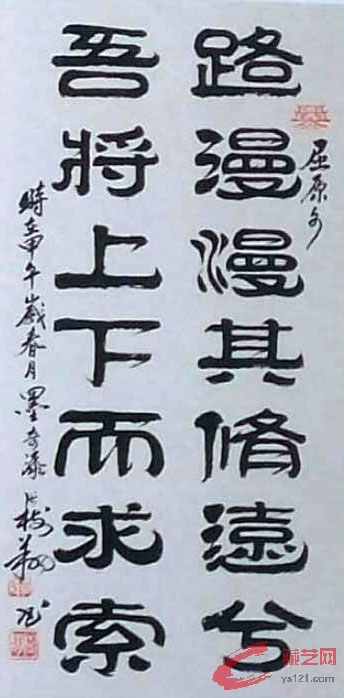 屈原句
路漫漫其脩遠兮
吾將上下而求索
時在甲午歲春月墨奇
脉艺网
ys121.com